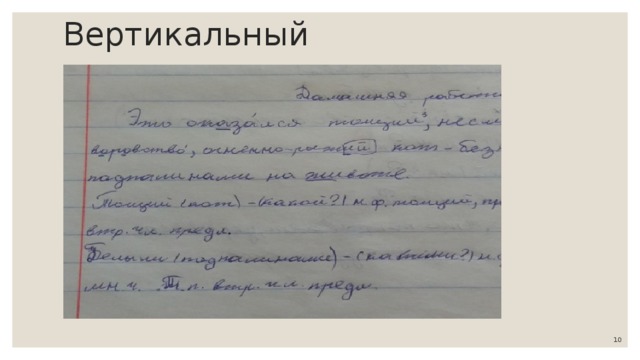 Вертикальный
Домашняя работа
Это оказался тощий, несм
воровство, огненно-рыжий кот – без
подпалинами на животе.
Тощий (кот) – (какой?) н.ф. тощий, пр
втр. чл. предл.
Белыми (подпалинами) – (какими?) н.
мн ч. Т.п. втр. чл. предл.
10